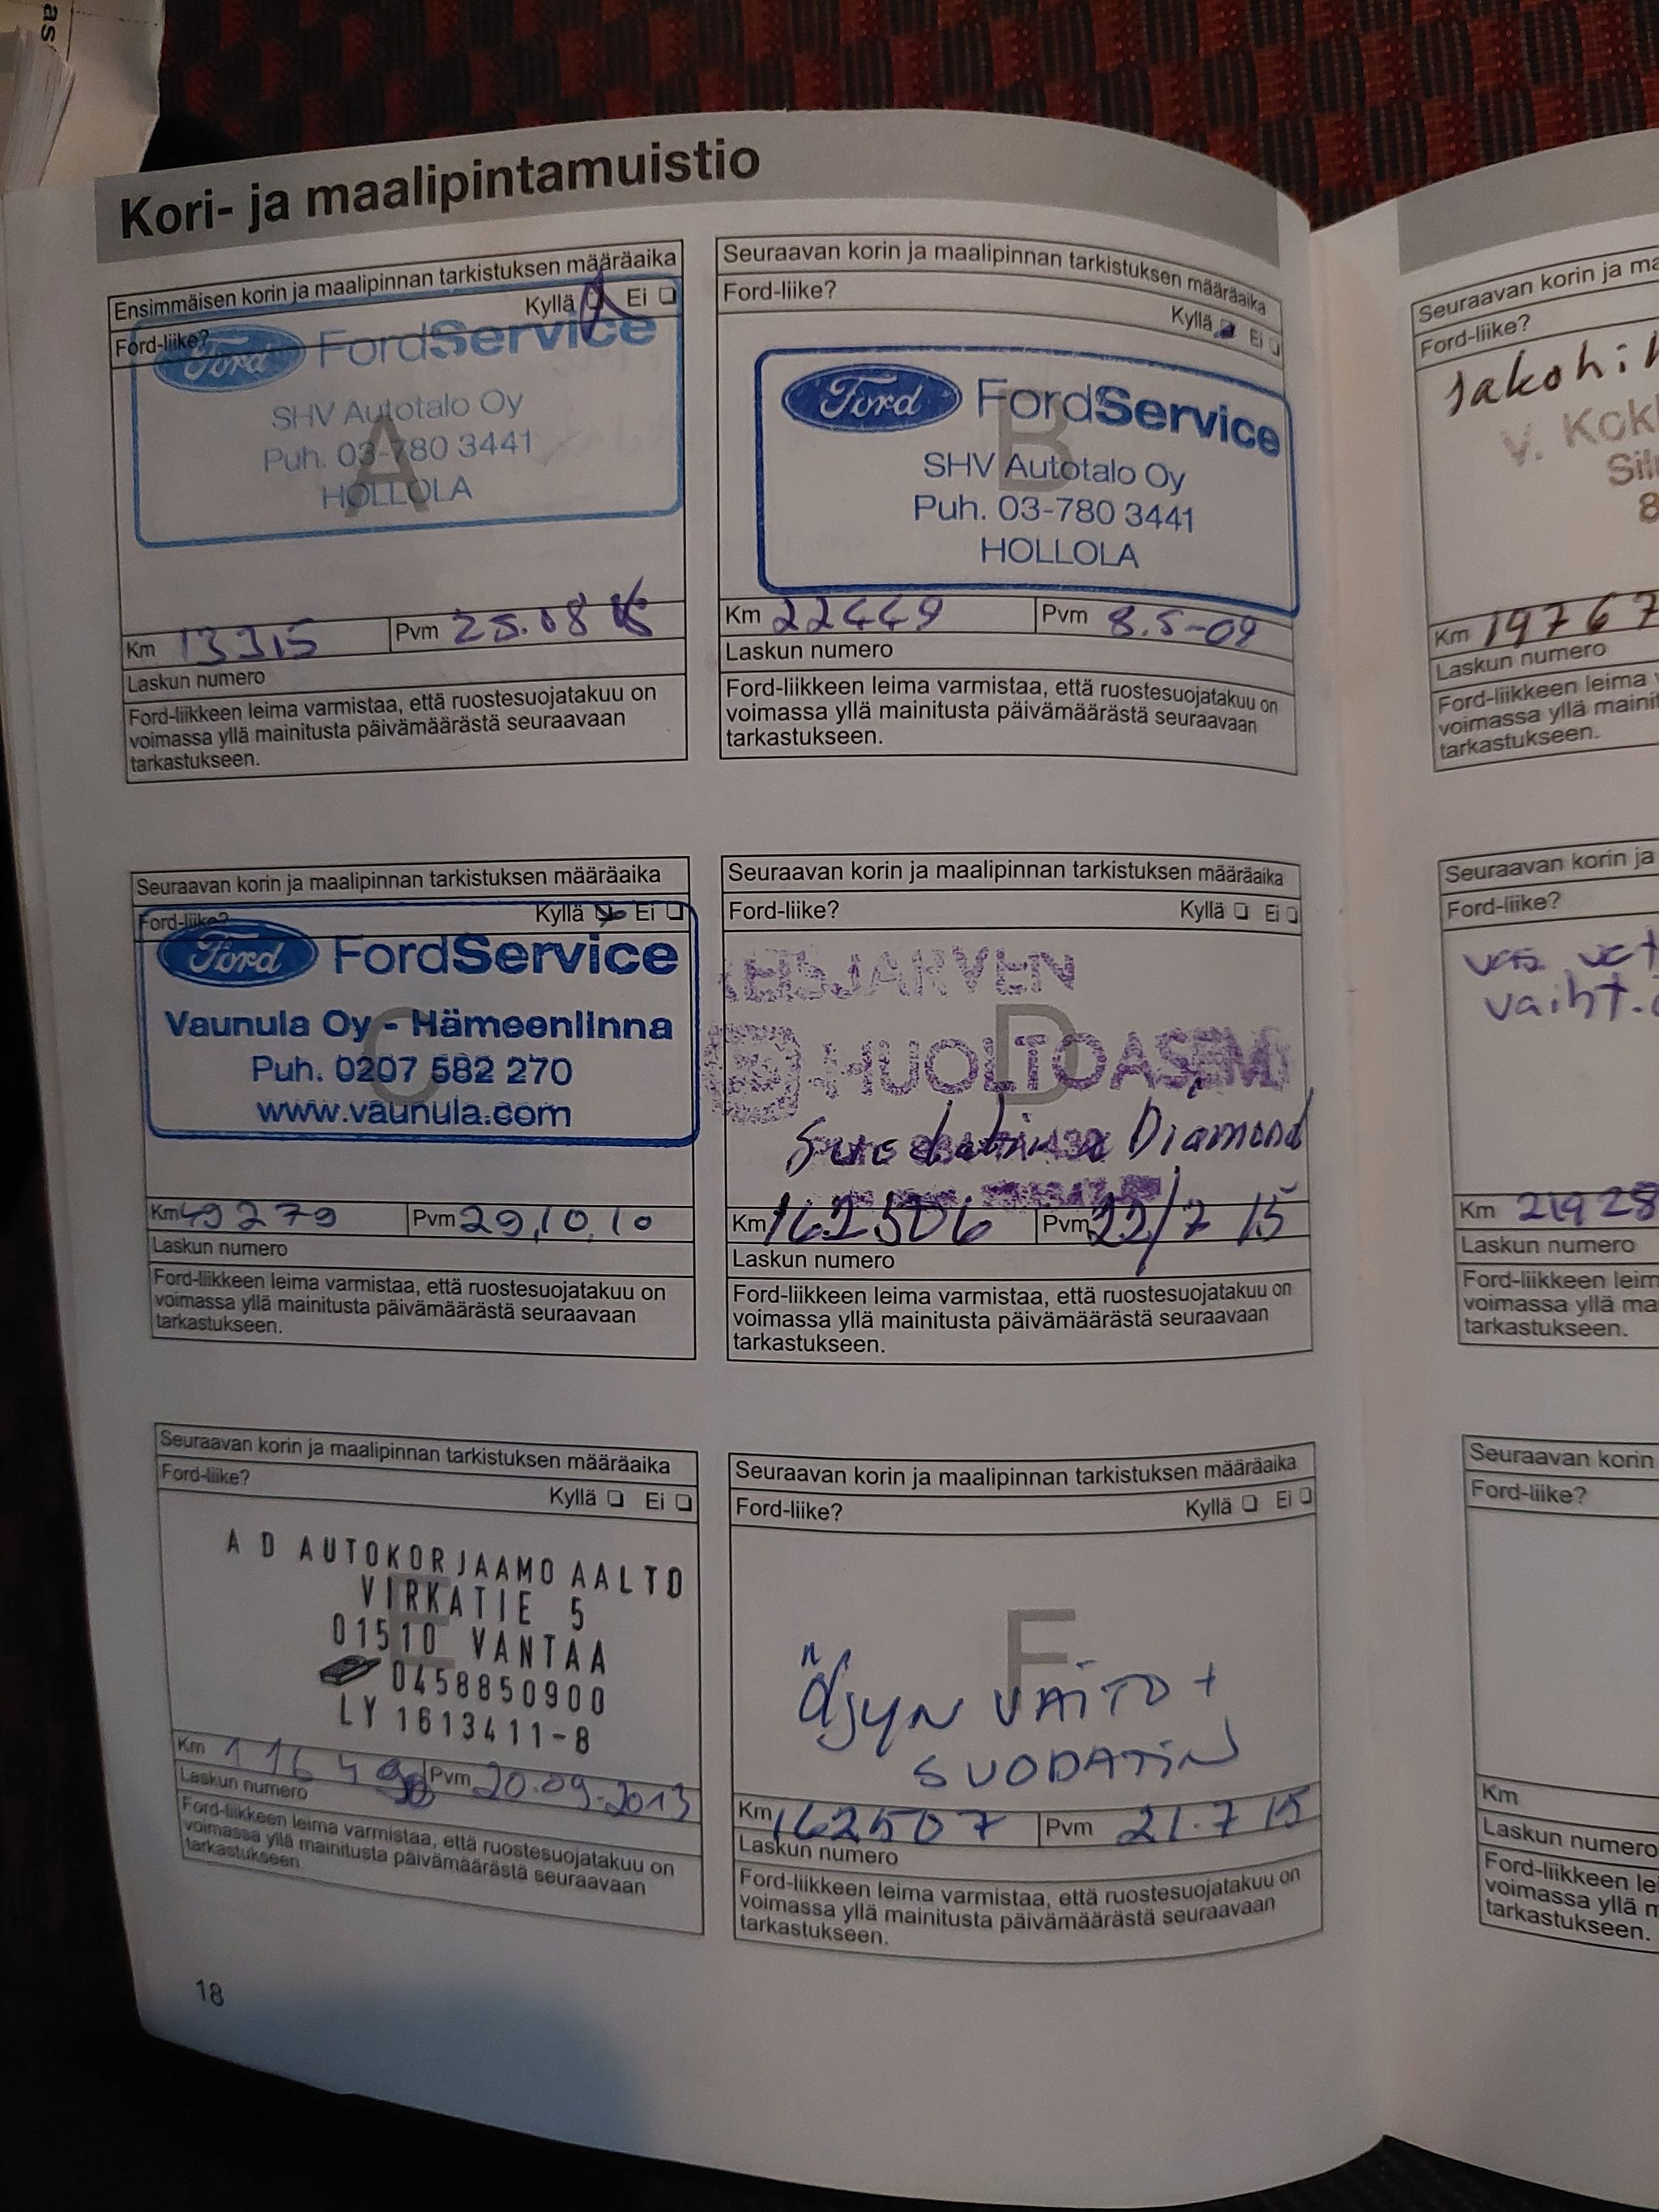 as
Kori- ja maalipintamuistio
Ensimmäisen korin ja maalipinnan tarkistuksen määräaika
Ford-liike? Kyllä Ei
Ford FordService
SHV Autotalo Oy
Puh. 03-780 3441
HOLLOLA
A
Km 13315 Pvm 25.08
Laskun numero
Ford-liikkeen leima varmistaa, että ruostesuojatakuu on
voimassa yllä mainitusta päivämäärästä seuraavaan
tarkastukseen.
Seuraavan korin ja maalipinnan tarkistuksen määräaika
Ford-liike? Kyllä Ei
Ford FordService
SHV Autotalo Oy
Puh. 03-780 3441
HOLLOLA
B
Km 22449 Pvm 8.5-09
Laskun numero
Ford-liikkeen leima varmistaa, että ruostesuojatakuu on
voimassa yllä mainitusta päivämäärästä seuraavaan
tarkastukseen.
Seuraavan korin ja maalipinnan tarkistuksen määräaika
Ford-liike? Kyllä Ei
Ford FordService
Vaunula Oy - Hämeenlinna
Puh. 0207 582 270
www.vaunula.com
C
Km 49279 Pvm 29,10,10
Laskun numero
Ford-liikkeen leima varmistaa, että ruostesuojatakuu on
voimassa yllä mainitusta päivämäärästä seuraavaan
tarkastukseen.
Seuraavan korin ja maalipinnan tarkistuksen määräaika
Ford-liike? Kyllä Ei
D
HUOLTOASEMA
Diamond
Km 162506 Pvm 22/7 15
Laskun numero
Ford-liikkeen leima varmistaa, että ruostesuojatakuu on
voimassa yllä mainitusta päivämäärästä seuraavaan
tarkastukseen.
Seuraavan korin ja maalipinnan tarkistuksen määräaika
Ford-liike? Kyllä Ei
A D AUTOKORJAAMO AALTO
VIRKATIE 5
01510 VANTAA
0458850900
LY 1613411-8
E
Km Pvm 20.09.2013
Laskun numero
Ford-liikkeen leima varmistaa, että ruostesuojatakuu on
voimassa yllä mainitusta päivämäärästä seuraavaan
tarkastukseen.
Seuraavan korin ja maalipinnan tarkistuksen määräaika
Ford-liike? Kyllä Ei
F
Öljyn VAITO +
SUODATIN
Km 162507 Pvm 21.7 15
Laskun numero
Ford-liikkeen leima varmistaa, että ruostesuojatakuu on
voimassa yllä mainitusta päivämäärästä seuraavaan
tarkastukseen.
18
Seuraavan korin ja ma
Ford-liike?
Jakohi
V. Kok
Sil
8
Km 19767
Laskun numero
Ford-liikkeen leima
voimassa yllä mainit
tarkastukseen.
Seuraavan korin ja
Ford-liike?
vaiht.
Km 21928
Laskun numero
Ford-liikkeen leim
voimassa yllä ma
tarkastukseen.
Seuraavan korin
Ford-liike?
Km
Laskun numero
Ford-liikkeen le
voimassa yllä m
tarkastukseen.